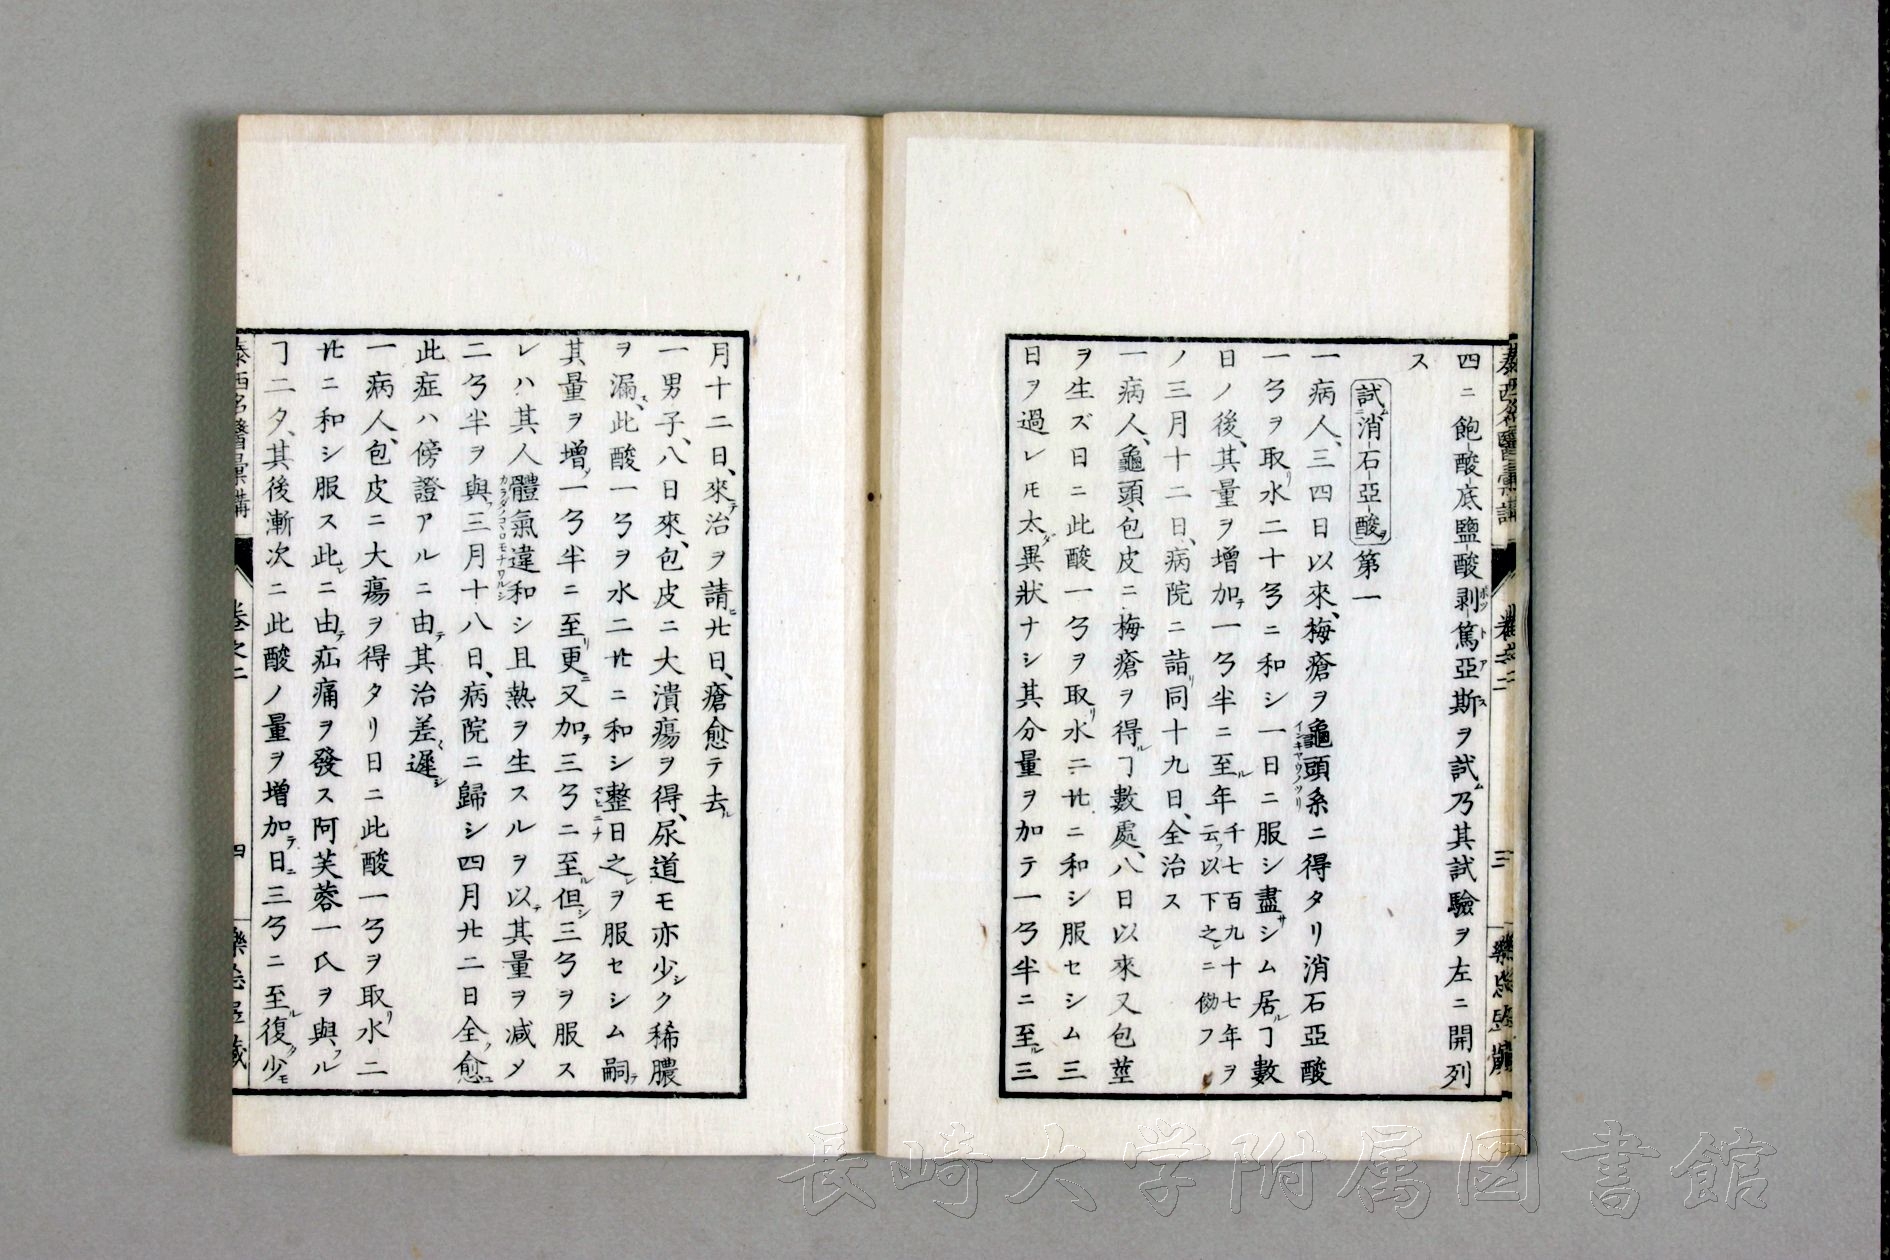 四ニ飽酸底鹽酸剥篤亞斯ヲ試ム乃其試驗ヲ左ニ開列
ス
試ムニ消石亞酸ヲ第一
一病人、三四日以來、梅瘡ヲ龜頭系ニ得タリ消石亞酸
一𠂎ヲ取リ水二十𠂎ニ和シ一日ニ服シ盡サシム居ルヿ數
日ノ後、其量ヲ增加テ一𠂎半ニ至ル年千七百九十七年ヲ云フ以下之レニ傚フ
ノ三月十二日、病院ニ詣リ同十九日、全治ス
一病人、龜頭、包皮ニ梅瘡ヲ得ルヿ數處、八日以來又包莖
ヲ生ズ日ニ此酸一𠂎ヲ取リ水ニ廿ニ和シ服セシム三
日ヲ過レㇳモ太ダ異狀ナシ其分量ヲ加テ一𠂎半ニ至ル三
月十二日、來テ治ヲ請ヒ廿日、瘡愈テ去ル
一男子、八日來、包皮ニ大潰瘍ヲ得、尿道モ亦少シク稀膿
ヲ漏ス、此酸一𠂎ヲ水二廿ニ和シ整日之レヲ服セシム嗣テ
其量ヲ增シ一𠂎半ニ至リ更ニ又加テ三𠂎ニ至ル但シ三𠂎ヲ服ス
レハ其人體氣違和シ且熱ヲ生スルヲ以テ其量ヲ减メ
二𠂎半ヲ與フ三月十八日、病院ニ歸シ四月廿二日全ク愈ユ
此症ハ傍證アルニ由テ其治差ヤ遲シ
一病人、包皮ニ大瘍ヲ得タリ日ニ此酸一𠂎ヲ取リ水二
廿ニ和シ服ス此レニ由テ疝痛ヲ發ス阿芙蓉一氏ヲ與フル
ヿ二夕、其後漸次ニ此酸ノ量ヲ增加テ日ニ三𠂎ニ至ル復タ少モ
泰西名醫彙講
卷之二
三
泰西名醫彙講
卷之二
四
長崎大学附属図書館